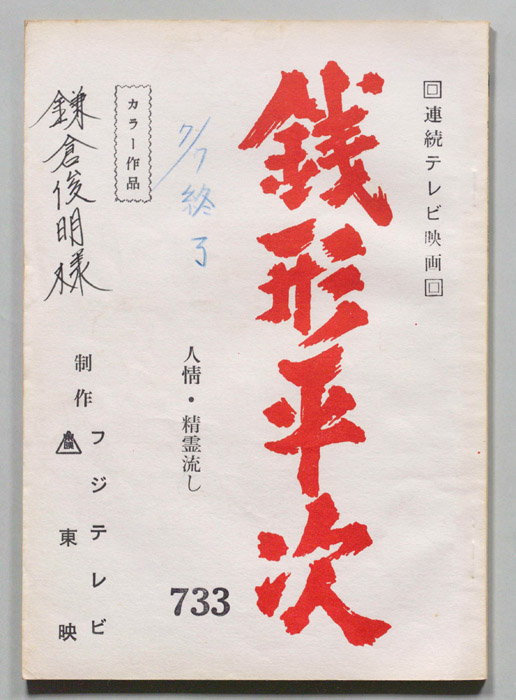 連続テレビ映画
銭形平次
人情・精霊流し
733
7/7終了
カラー作品
鎌倉俊明様
制作
フジテレビ
東映